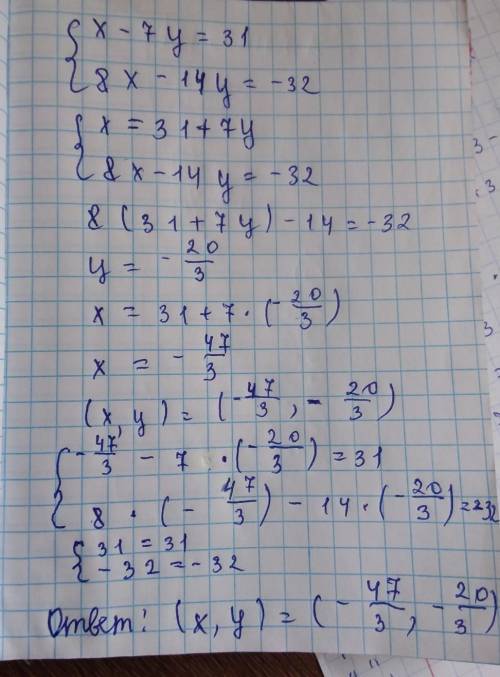 { x - 7y = 31
8x - 14y = -32
{ x = 31 + 7y
8x - 14y = -32
8(31 + 7y) - 14 = -32
y = - 20/3
x = 31 + 7 · (- 20/3)
x = - 47/3
(x, y) = (- 47/3, - 20/3)
{ - 47/3 - 7 · (- 20/3) = 31
8 · (- 47/3) - 14 · (- 20/3) =
{ 31 = 31
- 32 = -32
Ответ: (x, y) = (- 47/3, - 20/3)